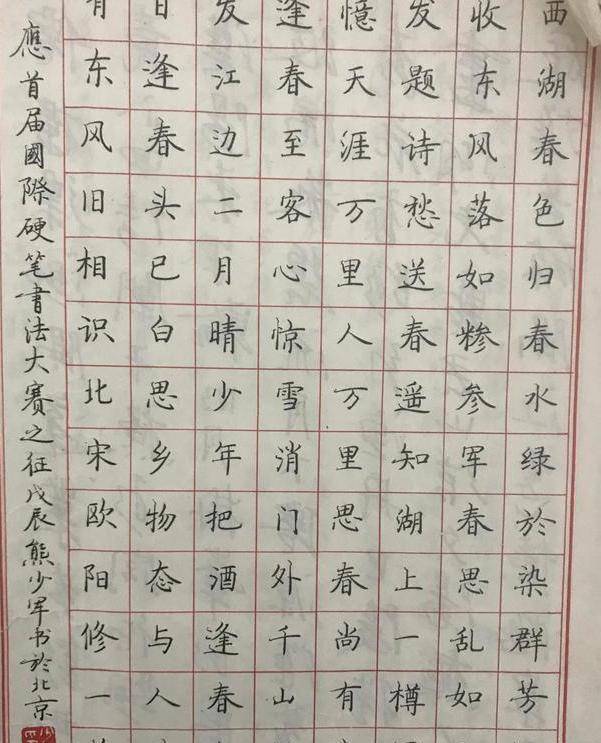 西湖春色归春水绿於染群芳
收东风落如糁参军春思乱如
发题诗愁送春遥知湖上一樽
憶天涯万里人万里思春尚有
逢春至客心惊雪消门外千山
发江边二月晴少年把酒逢春
日逢春头已白思乡物态与人
有东风旧相识北宋欧阳修一
應首届國際硬笔書法大赛之征戊辰熊少军书於北京